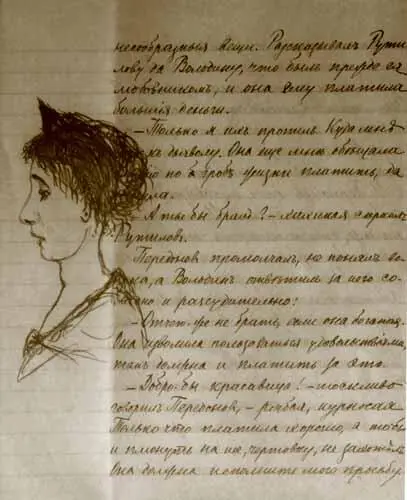 несообразныя вещи. Разсказывалъ Рути
лову да Володину, что былъ прежде ея
любовникомъ, и она ему платила
большія деньги.
– Только я ихъ пропилъ. Куда мнѣ
къ дьяволу. Она еще мнѣ обѣщала
по гробъ жизни платить, да
ула.
– А ты бы бралъ? – хихикая спросилъ
Рутиловъ.
Передоновъ промолчалъ, не понялъ во
са, а Володинъ отвѣтилъ за него со
дно и разсудительно:
– Отчего же не брать, если она богатая.
Она изволила пользоваться удовольствіями,
такъ должна и платить за это.
– Добро-бы красавица! – тоскливо
говорилъ Передоновъ, – рябая, курносая
Только что платила хорошо, а то бы
и плюнуть на нее, чертовку, не захотѣлъ
Она должна исполнить мою просьбу